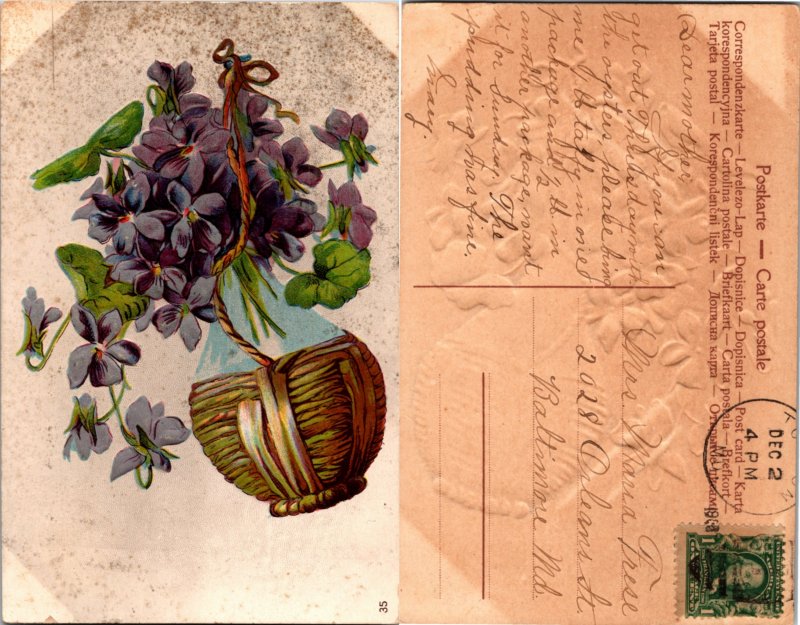 35
Postkarte — Carte postale
Correspondenzkarte — Levelezo-Lap — Dopisnice — Dopisnica — Post card — Karta
korespondencyjna — Cartolina postale — Briefkaart — Carta postala — Brefkort —
Tarjeta postal — Korespondenční listek — Дописна карта —
Dear mother,
If you can
get out got Wednesday with
the oysters please bring
me
package and in
another package, want
it for Sunday. The
pudding was fine.
Mrs. Maria Frese
2028 Orleans St.
Baltimore Md.
DEC 2
4 PM
1
1